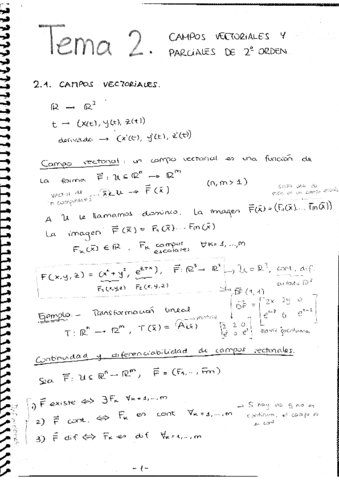 Tema 2. CAMPOS VECTORIALES Y
PARCIALES DE 2º ORDEN
2.1. CAMPOS VECTORIALES.
ℝ → ℝ³
t → (x(t), y(t), z(t))
derivada → (x'(t), y'(t), z'(t))
Campo vectorial: un campo vectorial es una función de
la forma F⃗: U ⊆ ℝⁿ → ℝᵐ (n,m > 1)
vector de n componentes x̄ ∈ U → F⃗(x̄)
A U le llamamos dominio, la imagen F⃗(x̄) = (F₁(x̄)... Fm(x̄))
La imagen F⃗(x̄) = F₁(x̄)... Fm(x̄)
Fₖ(x̄) ∈ ℝ, Fₖ campos escalares ∀k=1,...,m
F₁(x,y,z) F₂(x,y,z)
Ejemplo - Transformación lineal
T: ℝⁿ → ℝᵐ, T(x̄) = Ax̄
Continuidad y diferenciabilidad de campos vectoriales.
Sea F⃗: U ⊆ ℝⁿ → ℝᵐ, F⃗ = (F₁, ... Fm)
1) F⃗ existe ⇔ ∃Fₖ ∀k=1,...,m
2) F⃗ cont. ⇔ Fₖ es cont ∀k=1,...,m
3) F⃗ dif ⇔ Fₖ es dif ∀k=1,...,m
-1-